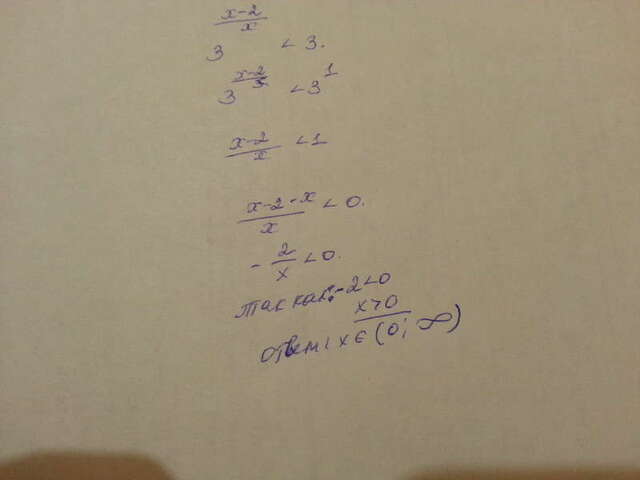 3^((x-2)/x) < 3.
3^((x-2)/x) < 3^1
(x-2)/x < 1
(x-2-x)/x < 0.
-2/x < 0.
так как: -2<0
x>0
ответ: x ∈ (0; ∞)